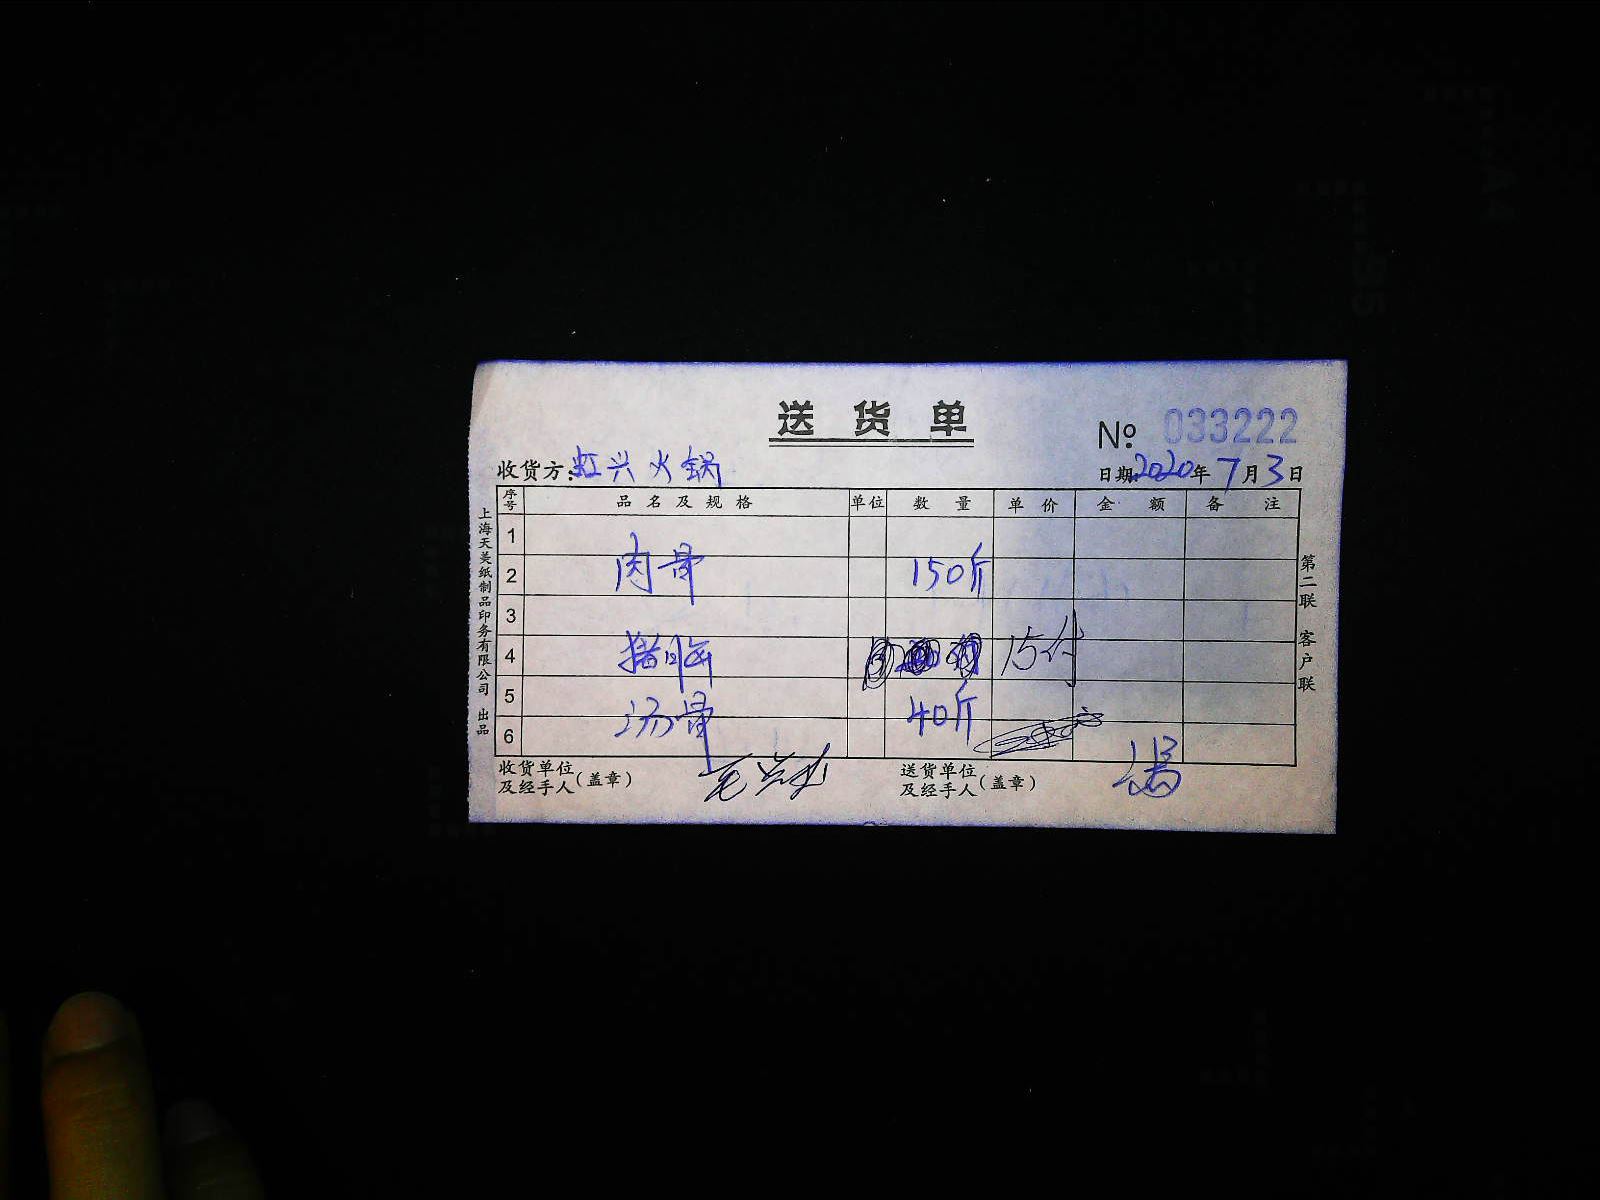 送货单
No 033222
收货方:虹兴火锅 日期2020年7月3日
序号 品名及规格 单位 数量 单价 金额 备注
1
2 肉骨 150斤
3
4 猪脑 15付
5 汤骨 40斤
6
收货单位及经手人(盖章) 送货单位及经手人(盖章)
上海天美纸制品印务有限公司 出品
第二联 客户联